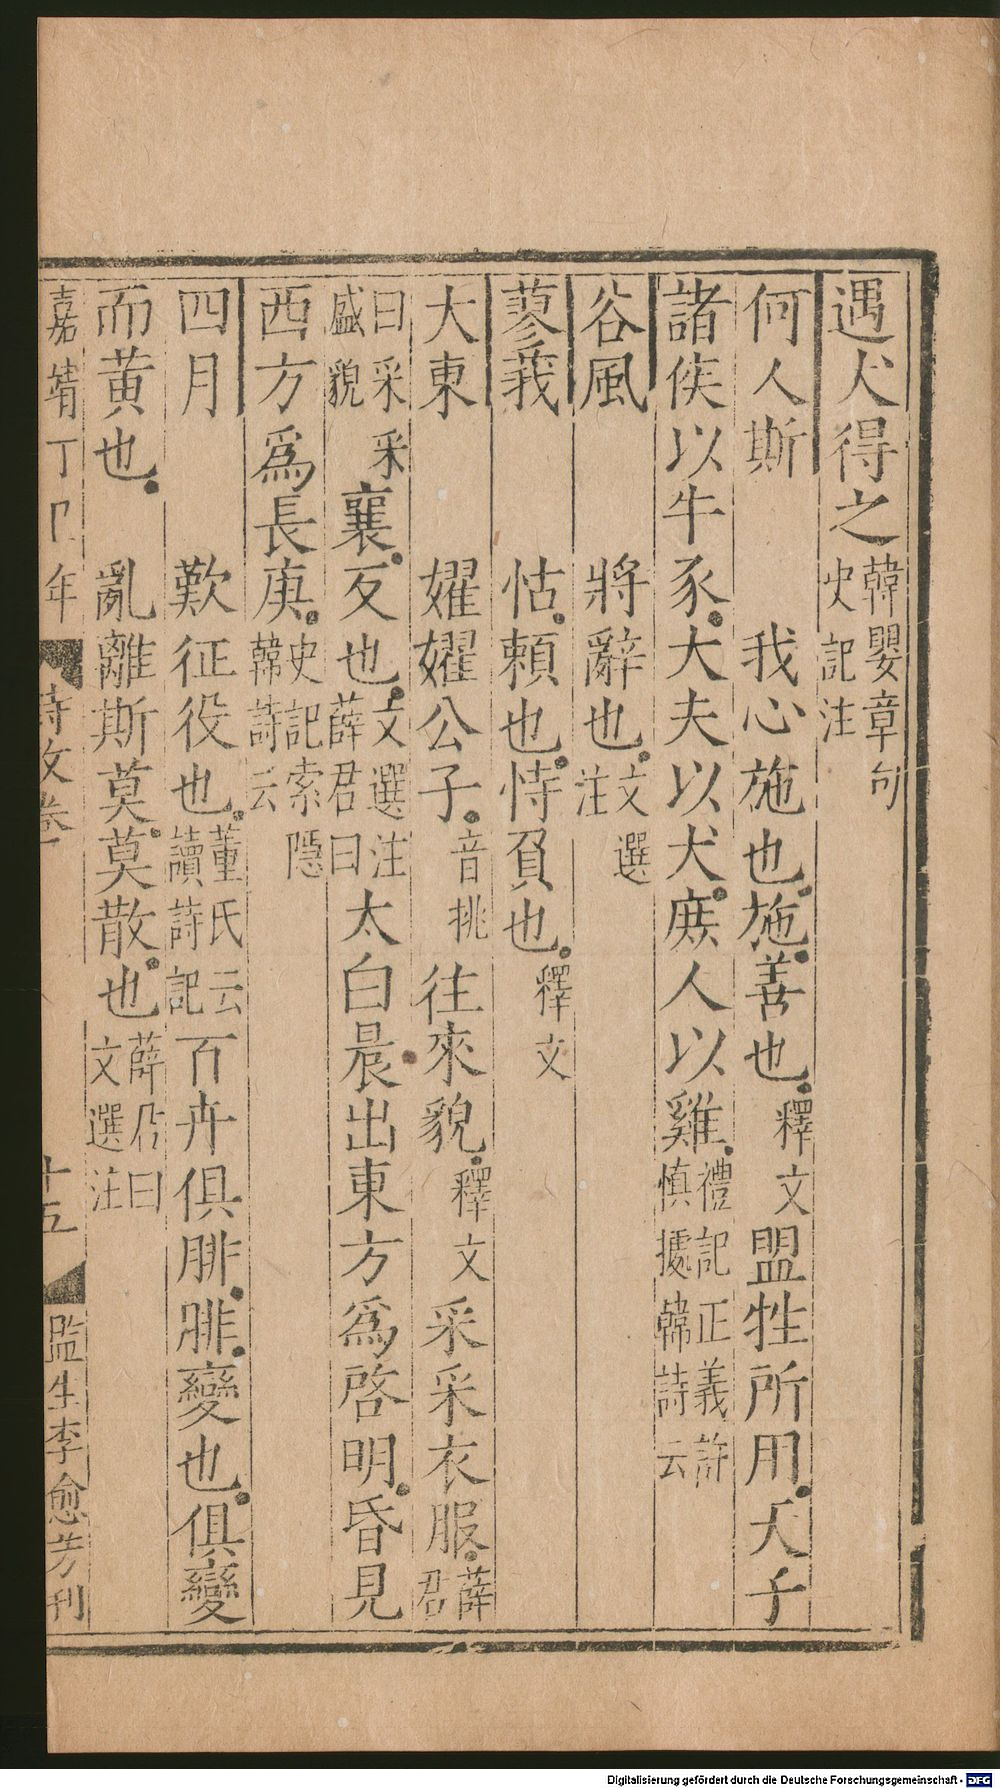 遇犬得之韓嬰章句史記注
何人斯　我心施也施善也釋文盟牲所用天子
諸侯以牛豕大夫以犬庶人以雞禮記正義許慎據韓詩云
谷風　將辭也文選注
蓼莪　怙賴也恃負也釋文
大東　嬥嬥公子音挑往來貌釋文采采衣服薛君
曰采采盛貌　襄反也文選注薛君曰太白晨出東方爲啓明昏見
西方爲長庚史記索隱韓詩云
四月　歎征役也董氏云讀詩記百卉俱腓腓變也俱變
而黃也　亂離斯莫莫散也薛君曰文選注
嘉靖丁巳年　詩攷卷一　十五　監生李愈芳刊
Digitalisierung gefördert durch die Deutsche Forschungsgemeinschaft - DFG